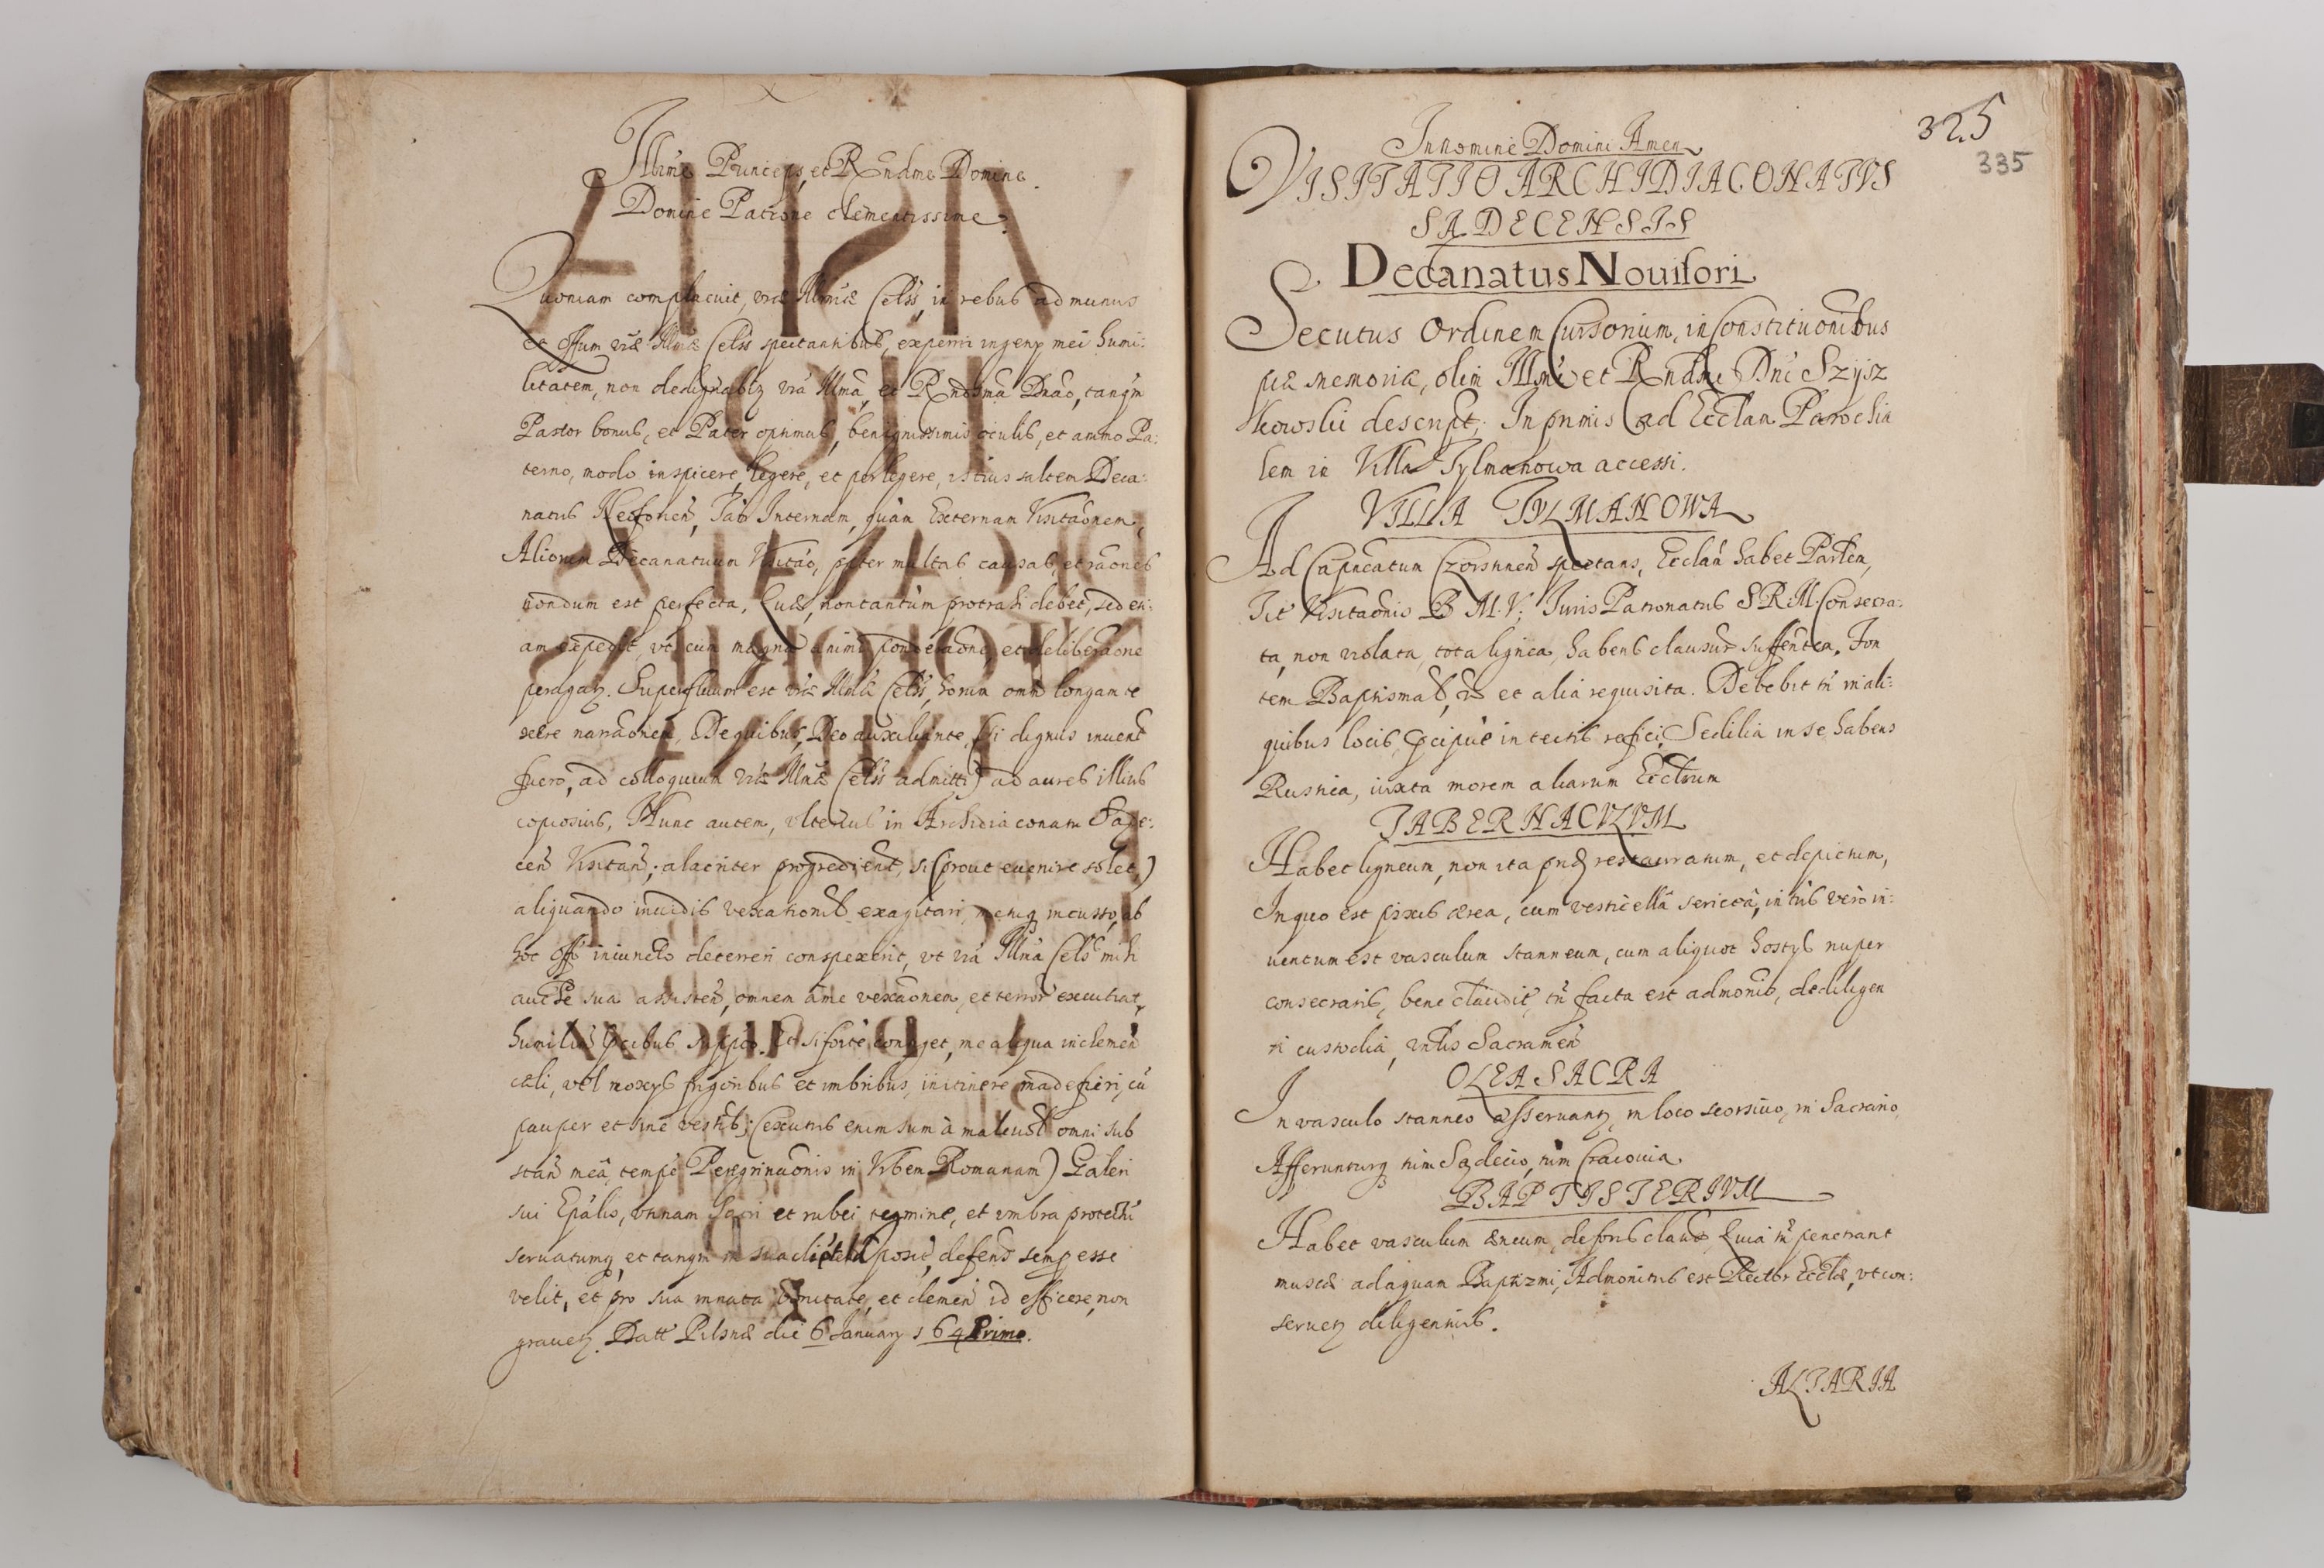 Illme Princeps, et Rndme Domine.
Domine Patrone clementissime.
Quoniam complacuit, vrae Illmae Cels, in rebus ad munus
et offum vrae Illmae Celss spectantibus, experiri ingenij mei humi:
litatem, non dedignabitz vra Illma, et Rndsma Dnao, tanqm
Pastor bonus, et Pater optimus, benignissimis oculis, et animo Pa:
terno, modo inspicere, legere, et perlegere, istius saltem Deca:
natus Neoforien, Tam Internam, quam Externam Visitaonem,
Aliorum Decanatuum Visitao, pter multas causas, et raones
nondum est perfecta, Quae, non tantum protrahi debet, sed eti:
am expedit, vt cum magna animi ponderaone, et deliberaone
peragatz. Superfluum est vrae Illmae Celss, horum omn longam te
xere narraonem, De quibus, Deo auxiliante, (si dignus invent
fuero, ad colloquium vrae Illmae Celss admitti) ad aures illius
copiosius, Nunc autem, vlterius in Archidiaconatu Sade:
cen Visitan; alacriter progredient, si (prout evenire solet,)
aliquando invidis vexationib exagitari, metuq incusso, ab
hoc offo iniuncto deterreri conspexerit, vt vra Illma Cels mihi
aucte sua assisten, omnem a me vexaonem, et terror executiat,
humilius pcibus supplico. Et si forte continget, me aliqua inclemen
caeli, vel noxys frigoribus et imbribus, in itinere madefieri, cu
pauper et sine vestib; (exutus enim sum a malevol omni sub
stan mea, tempe Peregrinaonis in Vrbem Romanam) Galeri
sui Epalis, vtinam sacri et rubei tegmine, et vmbra protecti
servatumq, et tanqm in sua clientela posit, defens semp esse
velit, et pro sua innata bonitate, et clemen id efficere, non
gravetz. Datt Pilsnae die 6 January 164 Primo.
325
335
In nomine Domini Amen
VISITATIO ARCHIDIACONATVS
SADECENSIS
Decanatus Novifori
Secutus Ordinem Cursorium, in Constitutionibus
piae memoriae, olim Illmi et Rndmi Dni Szysz
kowski descript, In primis ad Ecclam Parochia
lem in Villa Tylmanowa accessi.
VILLA TYLMANOWA
Ad Capneatum Czorstinen spectans, Ecclam habet Parlem,
Tit Visitaonis B M. V: Iuris Patronatus S R. M. Consecra:
ta, non violata, tota lignea, habens clausur sufficntea. Fon
tem Baptismal, et alia requisita. Debebit tn in ali:
quibus locis, pcipue in tectis refici, Sedilia in se habens
Rustica, iuxta morem aliarum Ecclrum
TABERNACVLVM
Habet ligneum, non ita prid restauratum, et depictum,
In quo est pixis aerea, cum vesticella sericea, intus vero in:
ventum est vasculum stanneum, cum aliquot hostys nuper
consecratis, bene claudit, tn facta est admonio, de diligen
ti custodia, vntis Sacramen
OLEA SACRA
In vasculo stanneo asservantz, in loco seorsivo, in Sacrario,
Afferunturq tum Sadecio, tum Cracovia
BAPTISTERIVM
Habet vasculum aeneum, deforis claus, Quia tn penetrant
muscae ad aquam Baptizmi, Admonitus est Rector Ecclae, vt con:
servetz diligentius.
ALTARIA